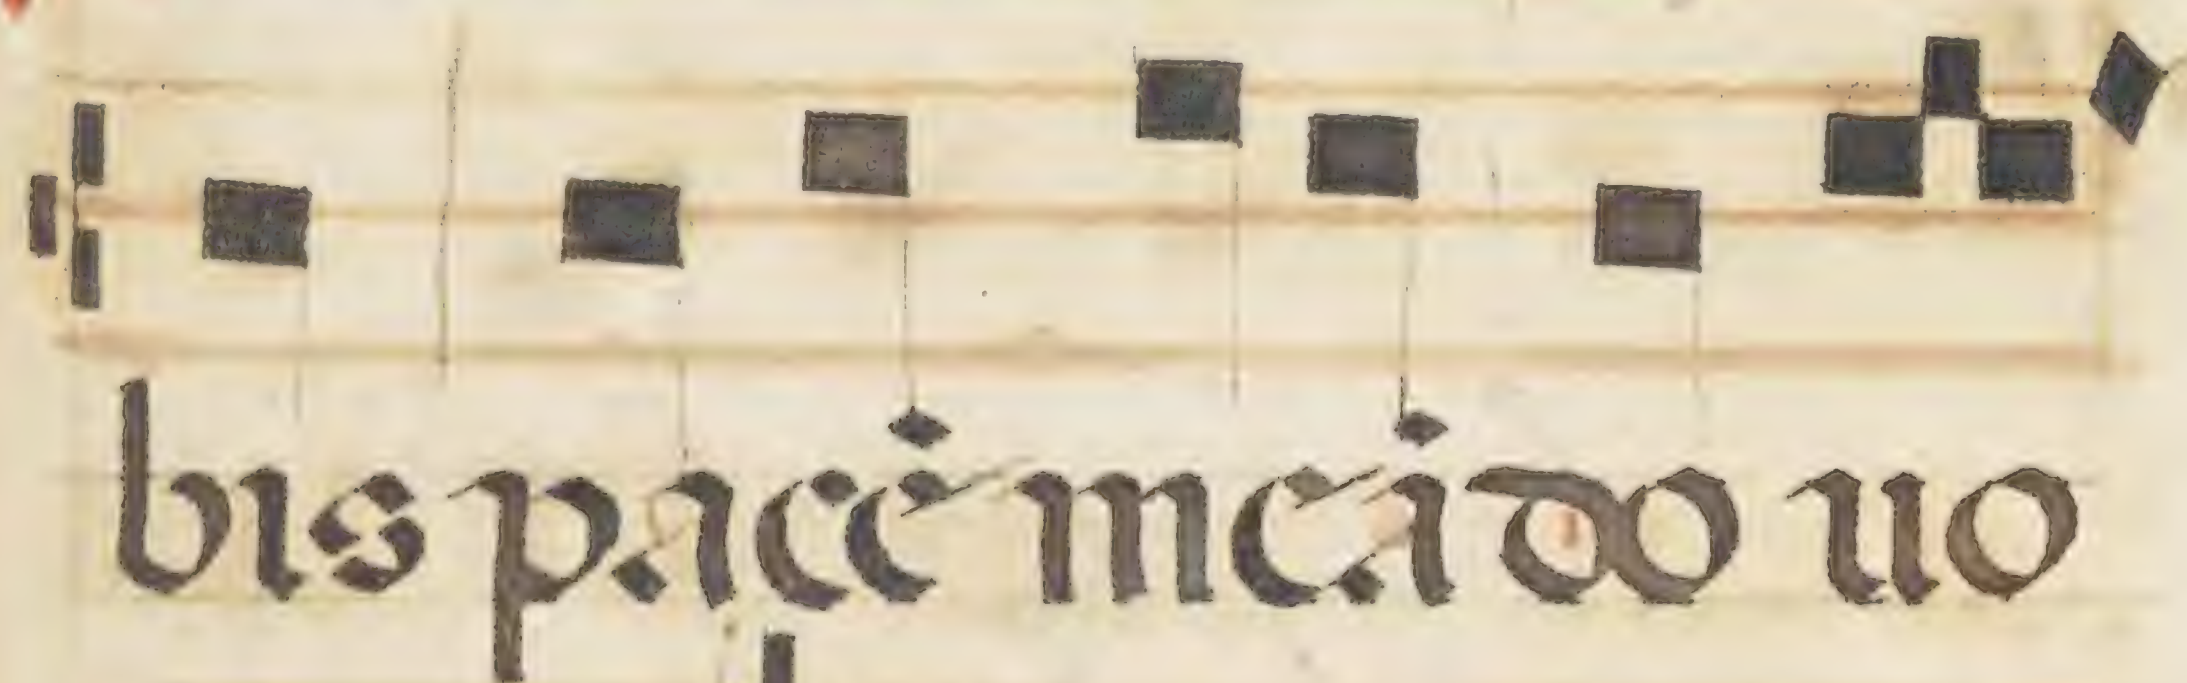 bis pacē meā do uo